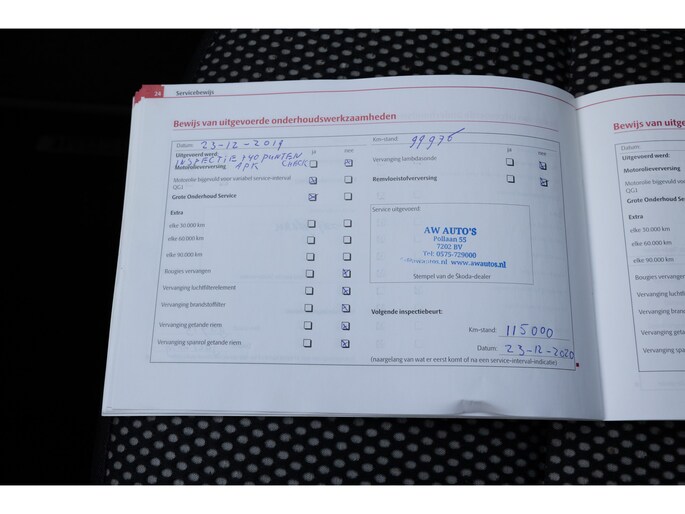 24 Servicebewijs
Bewijs van uitgevoerde onderhoudswerkzaamheden
Datum: 23-12-2019
Km-stand: 99976
Uitgevoerd werd: ja nee
INSPECTIE 140 PUNTEN CHECK
Motorolieverversing APK
Motorolie bijgevuld voor variabel service-interval QG1
Grote Onderhoud Service
Extra
elke 30.000 km
elke 60.000 km
elke 90.000 km
Bougies vervangen
Vervanging luchtfilterelement
Vervanging brandstoffilter
Vervanging getande riem
Vervanging spanrol getande riem
ja nee
Vervanging lambdasonde
Remvloeistofverversing
Service uitgevoerd:
AW AUTO'S
Pollaan 55
7202 BV
Tel: 0575-729000
www.awautos.nl
Stempel van de Škoda-dealer
Volgende inspectiebeurt:
Km-stand: 115000
Datum: 23-12-2020
(naargelang van wat er eerst komt of na een service-interval-indicatie)
Bewijs van uitge
Datum:
Uitgevoerd werd:
Motorolieverversing
Motorolie bijgevuld
QG1
Grote Onderhoud Se
Extra
elke 30.000 km
elke 60.000 km
elke 90.000 km
Bougies vervangen
Vervanging luchtfil
Vervanging bran
Vervanging geta
Vervanging spanro